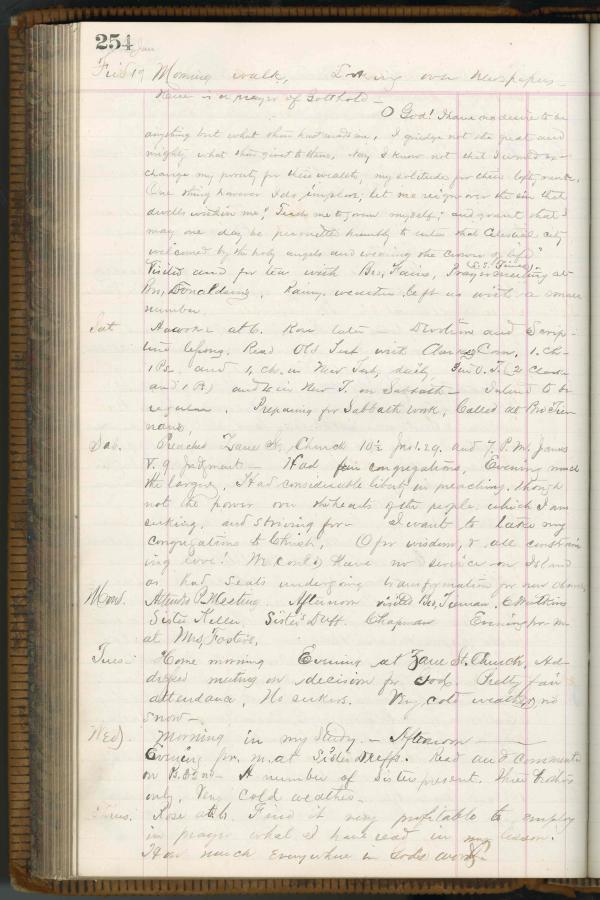 254 Jan
Frid 19 Morning walk, Looking over Newspapers
Here is a prayer of Gotthold —
O God! I have no desire to be
anything but what thou hast made me. I grudge not the great and
mighty what thou givest to them. Nay I know not that I would ex-
change my poverty for their wealth, my solitude for their lofty rank.
One thing however I do implore; let me reign over the sin that
dwells within me; Teach me to know myself; and grant that I
may one day be permitted humbly to enter that Celestial city
welcomed by the holy angels and wearing the Crown of life"
Visited and for tea with Bro, Prayer meeting at
(S.S. Times)
Bro, Donaldsons, Rainy weather left us with a small
number.
Sat Awoke at 6. Rose later — Devotion and Scrip-
ture lesson. Read Old Test with Clarkes Com. 1. Ch.
1 Ps. and 1, ch. in New Test, daily O. T. (2 Clarke
and 1 Ps) and in New T. on Sabbath — Intend to be
regular. Preparing for Sabbath work, Called at Bro Tier-
nans,
Sab. Preached Zane St, Church 10½ Jno 1.29. and 7, P.M, James
V. 9 Judgment — Had fair congregations, Evening much
the larger, Had considerable liberty in preaching, though
not the power over the hearts of the people, which I am
seeking, and striving for — I want to take my
congregations to Christ, O for wisdom, & all constrain-
ing love! We could have no service on Island
as had seats undergoing transformation for new church,
Mond. Attended P. Meeting. Afternoon visited Bro, Tiernan, Watkins
Sister Keller, Sister Duff. Chapman Evening for m
at Mrs, Fosters,
Tues. Home morning Evening at Zane St. Church, Ad-
dressed meeting on decision for God. Pretty fair
attendance, No seekers. Very cold weather, no
snow —
Wed) Morning in my study. — Afternoon
Evening pr. m. at Sister Neffs. Read and comment
on — A number of Sister present. Three brothers
only, Very cold weather —
Thurs. Rose at 6. Find it very profitable to employ
in prayer what I have read in my lesson.
How much everywhere in Gods word